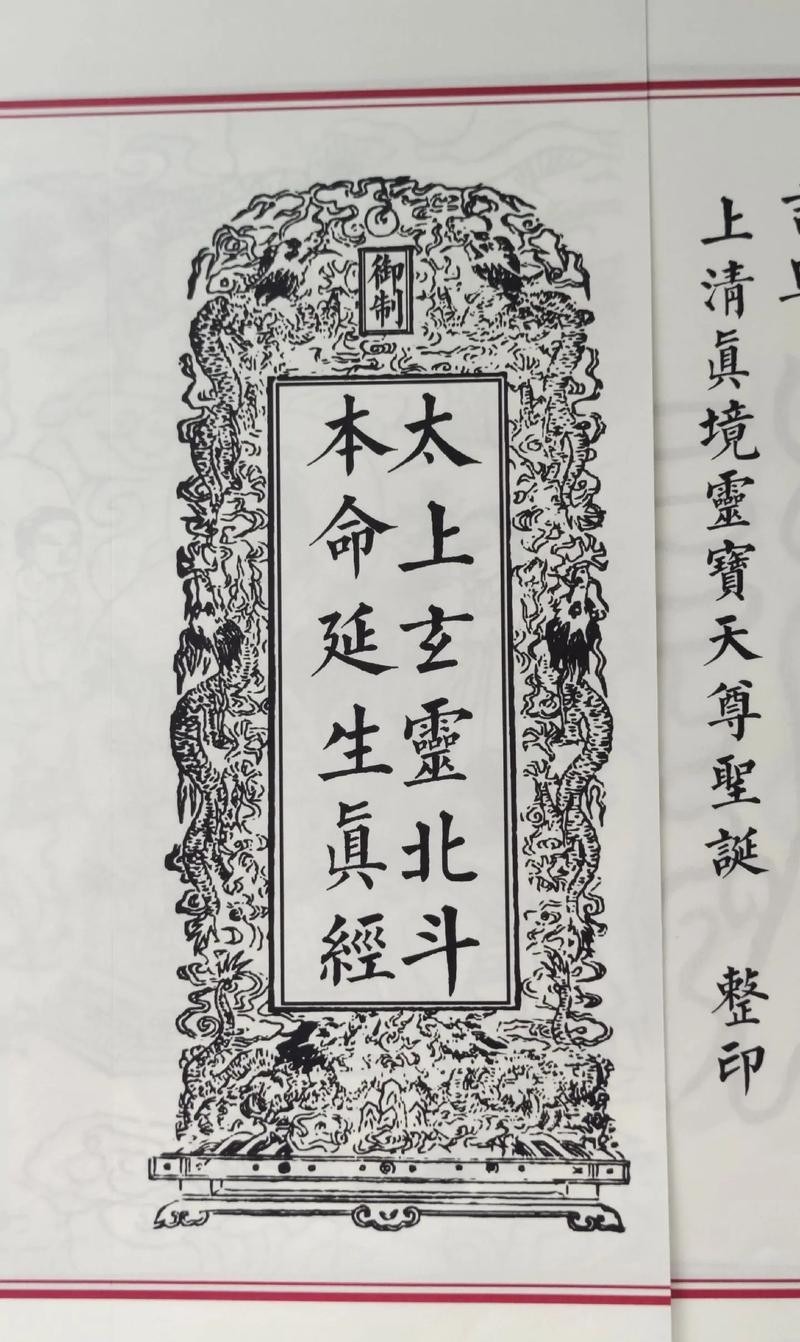 上清眞境靈寶天尊聖誕 整印
御制
太上玄靈北斗
本命延生眞經